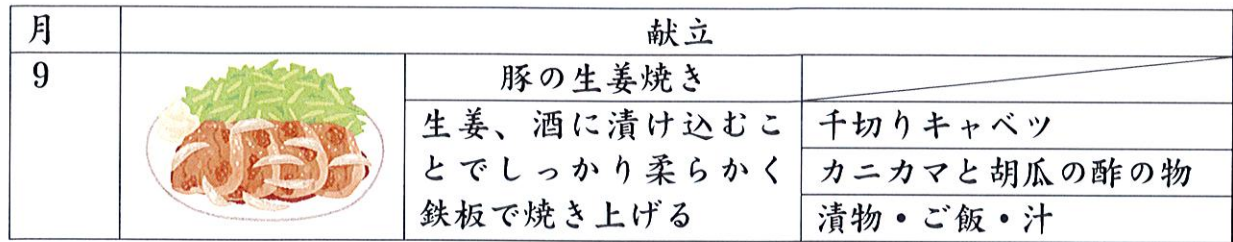 月 献立
9
豚の生姜焼き
生姜、酒に漬け込むこ
とでしっかり柔らかく
鉄板で焼き上げる
千切りキャベツ
カニカマと胡瓜の酢の物
漬物・ご飯・汁